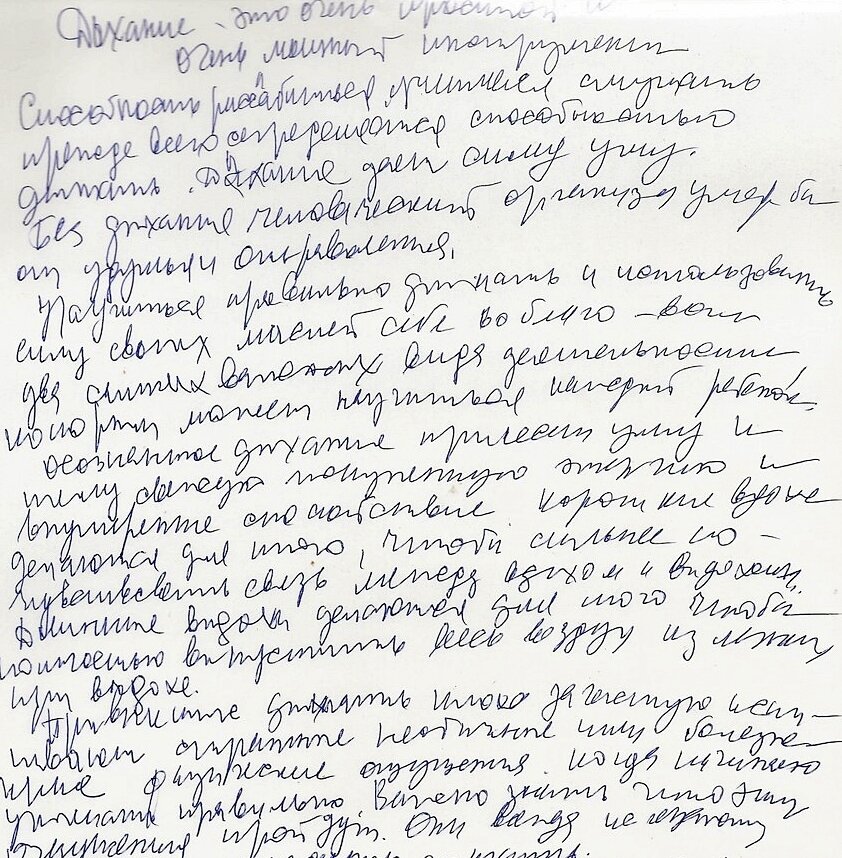 Дыхание - это очень простой и
очень мощный инструмент
Способность расслабиться учишься слушать
прежде всего определяется способностью
дышать. Дыхание дает силу уму.
Без дыхания человеческий организм умер бы
от удушья и отравления.
Научиться правильно дышать и использовать
силу своих мыслей себе во благо - вот
два самых важных вида деятельности
которым может научиться каждый ребенок.
осознанное дыхание принесет уму и
телу свежую жизненную энергию и
внутреннее спокойствие короткие вдохи
делаются для того, чтобы сильнее по-
чувствовать связь между вдохом и выдохом.
Длинные выдохи делаются для того чтобы
полностью выпустить весь воздух из легких
при выдохе.
Привыкшие дышать плохо зачастую испы-
тывают странные необычные или болезне-
нные физические ощущения когда начинают
дышать правильно. Важно знать что эти
ощущения пройдут. Они ведь не